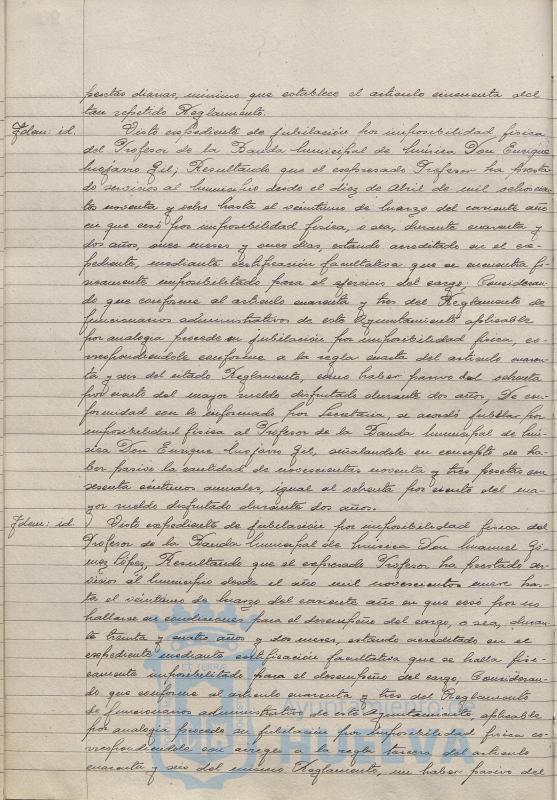 pesetas diarias, mínimo que establece el artículo cincuenta del
tan repetido Reglamento.
Idem: id. Visto expediente de jubilación por imposibilidad física
del Profesor de la Banda Municipal de Música Don Enrique
Mojarro Gil; Resultando que el expresado Profesor ha presta-
do servicios al Municipio desde el diez de Abril de mil ochocien-
tos noventa y ocho hasta el veintiuno de Marzo del corriente año
en que cesó por imposibilidad física, o sea, durante cuarenta y
dos años, once meses y once días, estando acreditado en el ex-
pediente, mediante certificación facultativa que se encuentra fí-
sicamente imposibilitado para el ejercicio del cargo; Consideran-
do que conforme al artículo cuarenta y tres del Reglamento de
funcionarios administrativos de este Ayuntamiento aplicable
por analogía procede su jubilación por imposibilidad física, co-
rrespondiéndole conforme a la regla cuarta del artículo cuaren-
ta y seis del citado Reglamento, como haber pasivo del ochenta
por ciento del mayor sueldo disfrutado durante dos años. De con-
formidad con lo informado por Secretaría, se acordó jubilar por
imposibilidad física al Profesor de la Banda Municipal de Mú-
sica Don Enrique Mojarro Gil, señalándole en concepto de ha-
ber pasivo la cantidad de novecientas noventa y tres pesetas con
sesenta céntimos anuales, igual al ochenta por ciento del ma-
yor sueldo disfrutado durante dos años.
Idem: id. Visto expediente de jubilación por imposibilidad física del
Profesor de la Banda Municipal de Música Don Manuel Gó-
mez López, Resultando que el expresado Profesor ha prestado ser-
vicios al Municipio desde el año mil novecientos nueve has-
ta el veintiuno de Marzo del corriente año en que cesó por no
hallarse en condiciones para el desempeño del cargo, o sea, duran-
te treinta y cuatro años y dos meses, estando acreditado en el
expediente mediante certificación facultativa que se halla físi-
camente imposibilitado para el desempeño del cargo, Consideran-
do que conforme al artículo cuarenta y tres del Reglamento
de funcionarios administrativos de este Ayuntamiento, aplicable
por analogía procede su jubilación por imposibilidad física co-
rrespondiéndole con arreglo a la regla tercera del artículo
cuarenta y seis del mismo Reglamento, un haber pasivo del
Ayuntamiento de
HUELVA